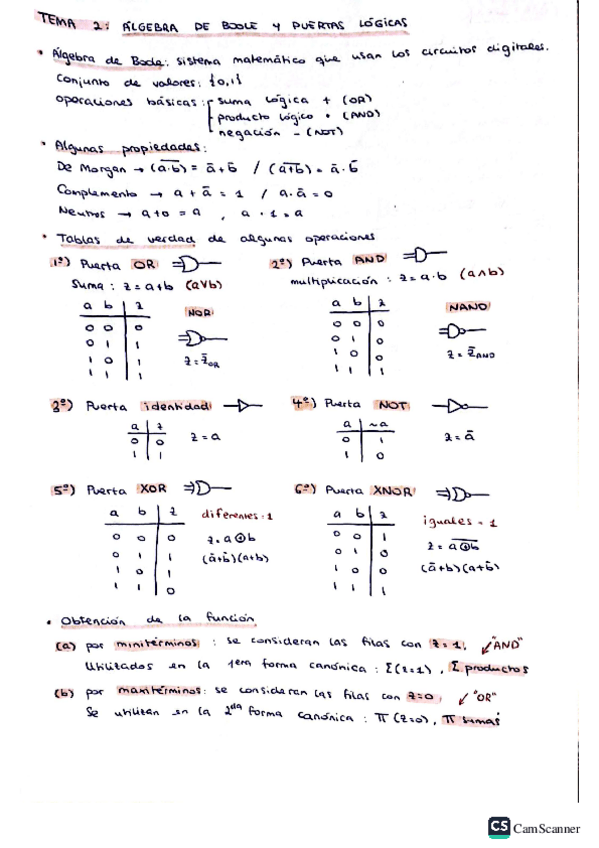 TEMA 2: ÁLGEBRA DE BOOLE Y PUERTAS LÓGICAS
• Álgebra de Boole: sistema matemático que usan los circuitos digitales.
Conjunto de valores: {0,1}
operaciones básicas: suma lógica + (OR)
producto lógico • (AND)
negación - (NOT)
• Algunas propiedades:
De Morgan → (a·b)‾ = ā+b̄ / (a+b)‾ = ā·b̄
Complemento → a + ā = 1 / a·ā = 0
Neutros → a+0 = a , a · 1 = a
• Tablas de verdad de algunas operaciones
1º) Puerta OR
Suma : z = a+b (a∨b)
a b z
0 0 0
0 1 1
1 0 1
1 1 1
NOR
z = z̄OR
2º) Puerta AND
multiplicación : z = a·b (a∧b)
a b z
0 0 0
0 1 0
1 0 0
1 1 1
NAND
z = z̄AND
3º) Puerta identidad
a z
0 0
1 1
z = a
4º) Puerta NOT
a ~a
0 1
1 0
z = ā
5º) Puerta XOR
a b z
0 0 0
0 1 1
1 0 1
1 1 0
diferentes = 1
z = a⊕b
(ā+b̄)(a+b)
6º) Puerta XNOR
a b z
0 0 1
0 1 0
1 0 0
1 1 1
iguales = 1
z = (a⊕b)‾
(ā+b)(a+b̄)
• Obtención de la función
(a) por minitérminos : se consideran las filas con z=1. ↙ "AND"
Utilizados en la 1era forma canónica : Σ(z=1) , Σ productos
(b) por maxitérminos: se consideran las filas con z=0, ↙ "OR"
Se utilizan en la 2da forma canónica : Π (z=0), Π sumas
CS CamScanner